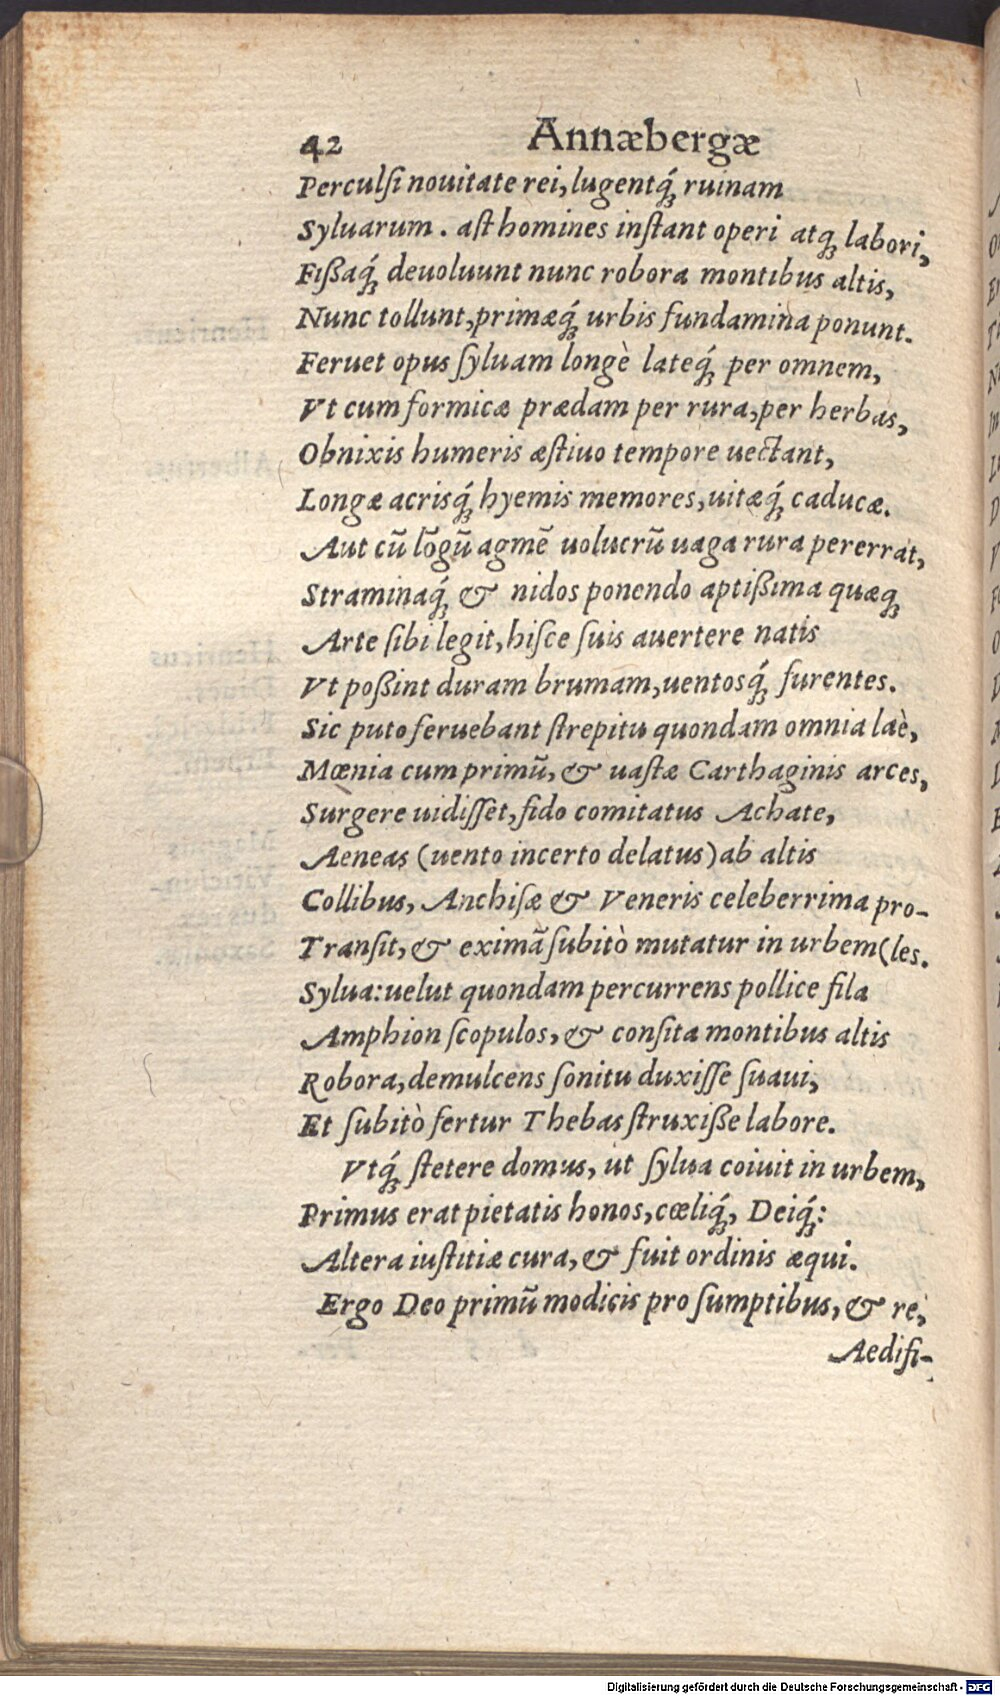 42 Annæbergæ
Perculſi nouitate rei, lugentq́ꝫ ruinam
Syluarum. aſt homines inſtant operi atqꝫ labori,
Fißaq́ꝫ deuoluunt nunc robora montibus altis,
Nunc tollunt, primæq́ꝫ urbis fundamina ponunt.
Feruet opus ſyluam longè lateq́ꝫ per omnem,
Vt cum formicæ prædam per rura, per herbas,
Obnixis humeris æſtiuo tempore uectant,
Longæ acrisq́ꝫ hyemis memores, uitæq́ꝫ caducæ.
Aut cũ lõgũ agmẽ uolucrũ uaga rura pererrat,
Straminaq́ꝫ & nidos ponendo aptißima quæqꝫ
Arte ſibi legit, hiſce ſuis auertere natis
Vt poßint duram brumam, uentosq́ꝫ furentes.
Sic puto feruebant ſtrepitu quondam omnia laè,
Mœnia cum primũ, & uaſtæ Carthaginis arces,
Surgere uidiſſet, fido comitatus Achate,
Aeneas (uento incerto delatus) ab altis
Collibus, Anchiſæ & Veneris celeberrima pro-
Tranſit, & eximã ſubitò mutatur in urbem (les.
Sylua: uelut quondam percurrens pollice fila
Amphion ſcopulos, & conſita montibus altis
Robora, demulcens ſonitu duxiſſe ſuaui,
Et ſubitò fertur Thebas ſtruxiße labore.
Vtq́ꝫ ſtetere domus, ut ſylua coiuit in urbem,
Primus erat pietatis honos, cœliq́ꝫ, Deiq́ꝫ:
Altera iuſtitiæ cura, & fuit ordinis æqui.
Ergo Deo primũ modicis pro ſumptibus, & re,
Aedifi-
Digitalisierung gefördert durch die Deutsche Forschungsgemeinschaft - DFG